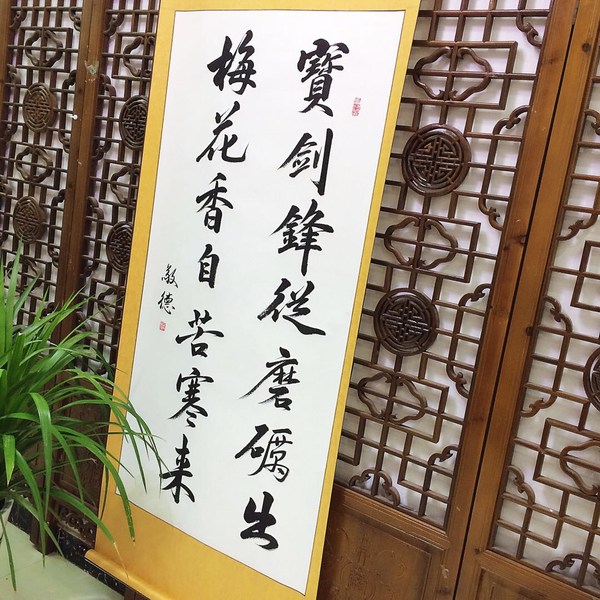 寶劍鋒從磨礪出
梅花香自苦寒来
敬德